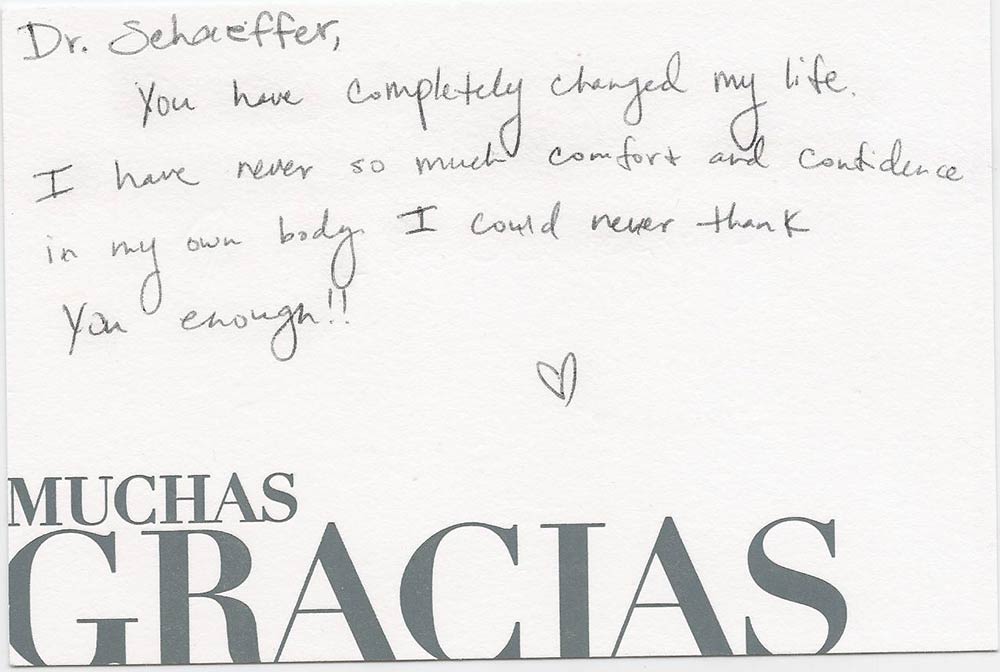 Dr. Schaeffer,
You have completely changed my life.
I have never so much comfort and confidence
in my own body. I could never thank
you enough!!
MUCHAS
GRACIAS